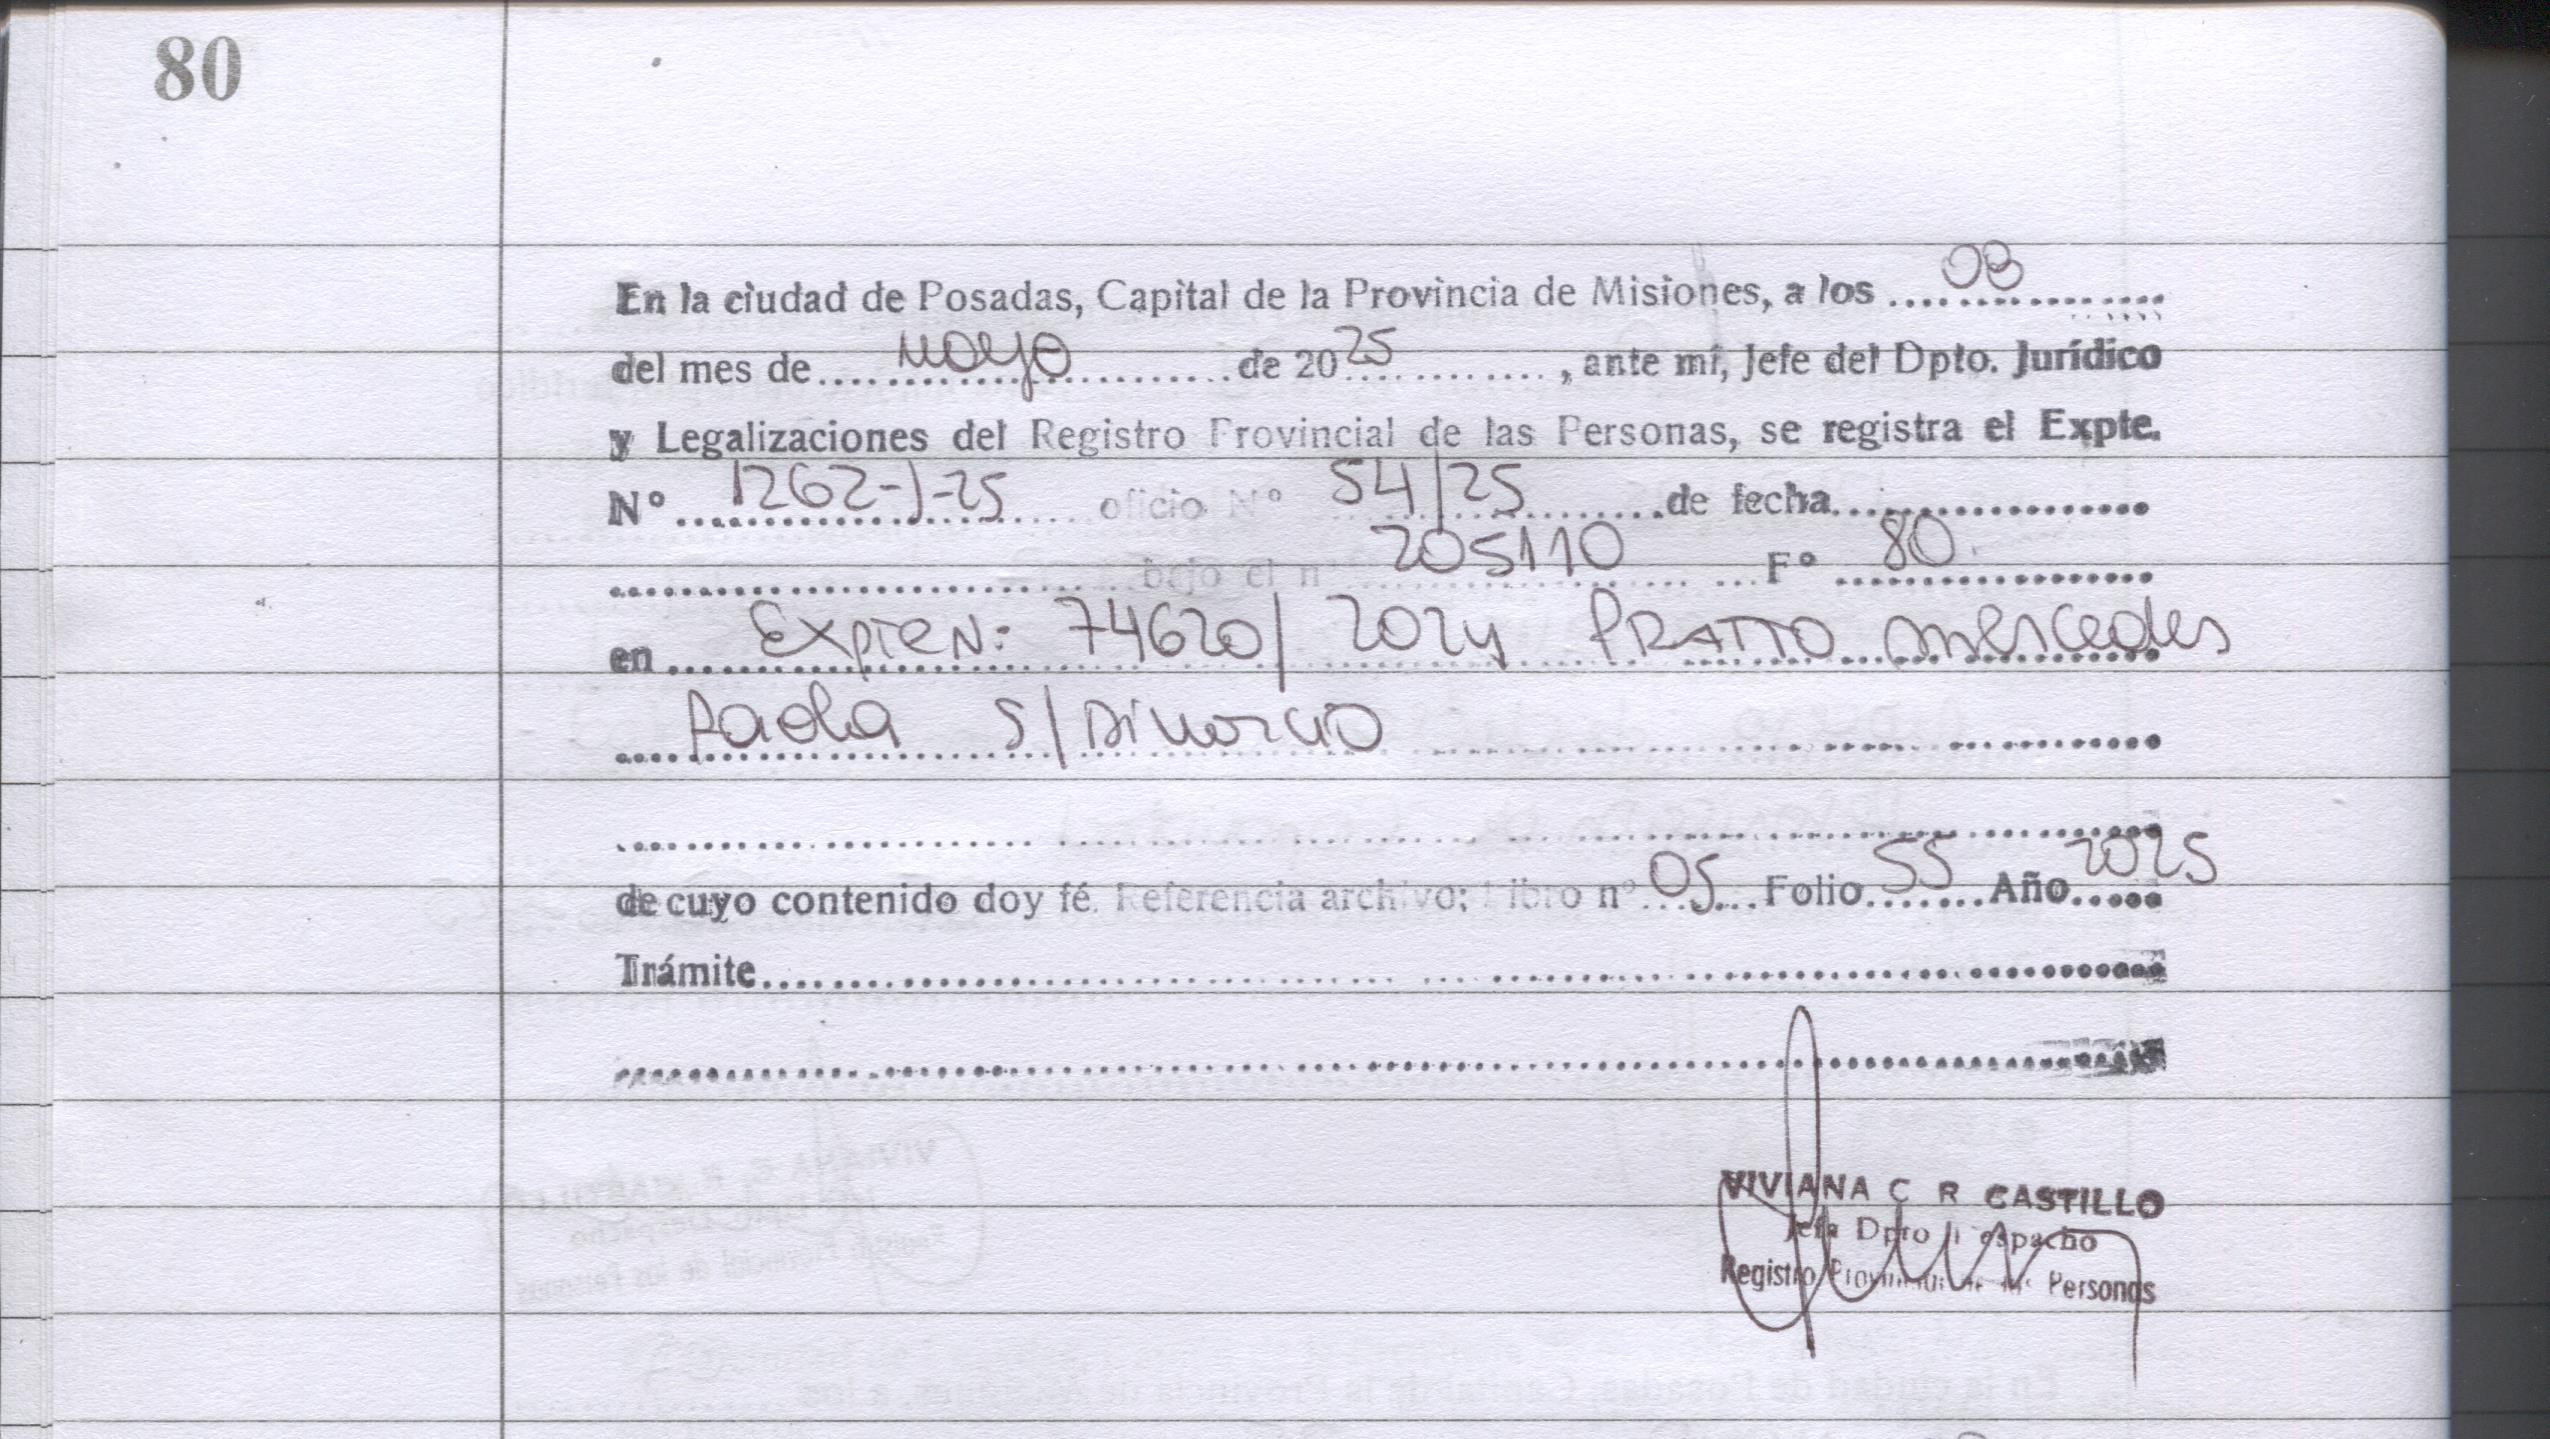 80
En la ciudad de Posadas, Capital de la Provincia de Misiones, a los .... 08 ....
del mes de .... mayo .... de 2025 .... , ante mí, Jefe del Dpto. Jurídico
y Legalizaciones del Registro Provincial de las Personas, se registra el Expte.
N° .... 1262-J-25 .... oficio N° 54/25 .... de fecha ....
.... bajo el n° 205110 .... F° 80 ....
en .... Expten: 74620/2024 PRATTO Mercedes
Paola S/Divorcio ....
de cuyo contenido doy fé. Referencia archivo; Libro n° 05 Folio 55 Año 2025
Trámite ....
VIVIANA C R CASTILLO
Jefa Dpto Despacho
Registro Provincial de las Personas